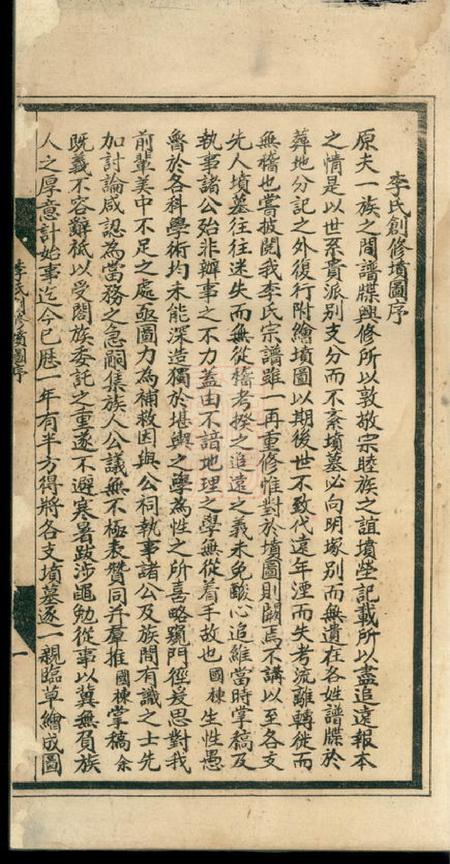 李氏創修墳圖序
原夫一族之間譜牒興修所以敦敬宗睦族之誼墳塋記載所以盡追遠報本
之情是以世系貴派別支分而不紊墳墓必向明塚別而無遺在各姓譜牒於
葬地分記之外復行附繪墳圖以期後世不致代遠年湮而失考流離轉徙而
無稽也嘗披閱我李氏宗譜雖一再重修惟對於墳圖則闕焉不講以至各支
先人墳墓往往迷失而無從稽考揆之追遠之義未免酸心追維當時掌稿及
執事諸公殆非辦事之不力蓋由不諳地理之學無從着手故也國棟生性愚
魯於各科學術均未能深造獨於堪輿之學為性之所喜略窺門徑爰思對我
前輩美中不足之處亟圖力為補救因與公祠執事諸公及族間有識之士先
加討論咸認為當務之急嗣集族人公議無不極表贊同并羣推國棟掌稿余
既義不容辭祗以受闔族委託之重遂不避寒暑跋涉黽勉從事以冀無負族
人之厚意計始事迄今已歷一年有半方得將各支墳墓逐一親臨草繪成圖
李氏創修墳圖序
一